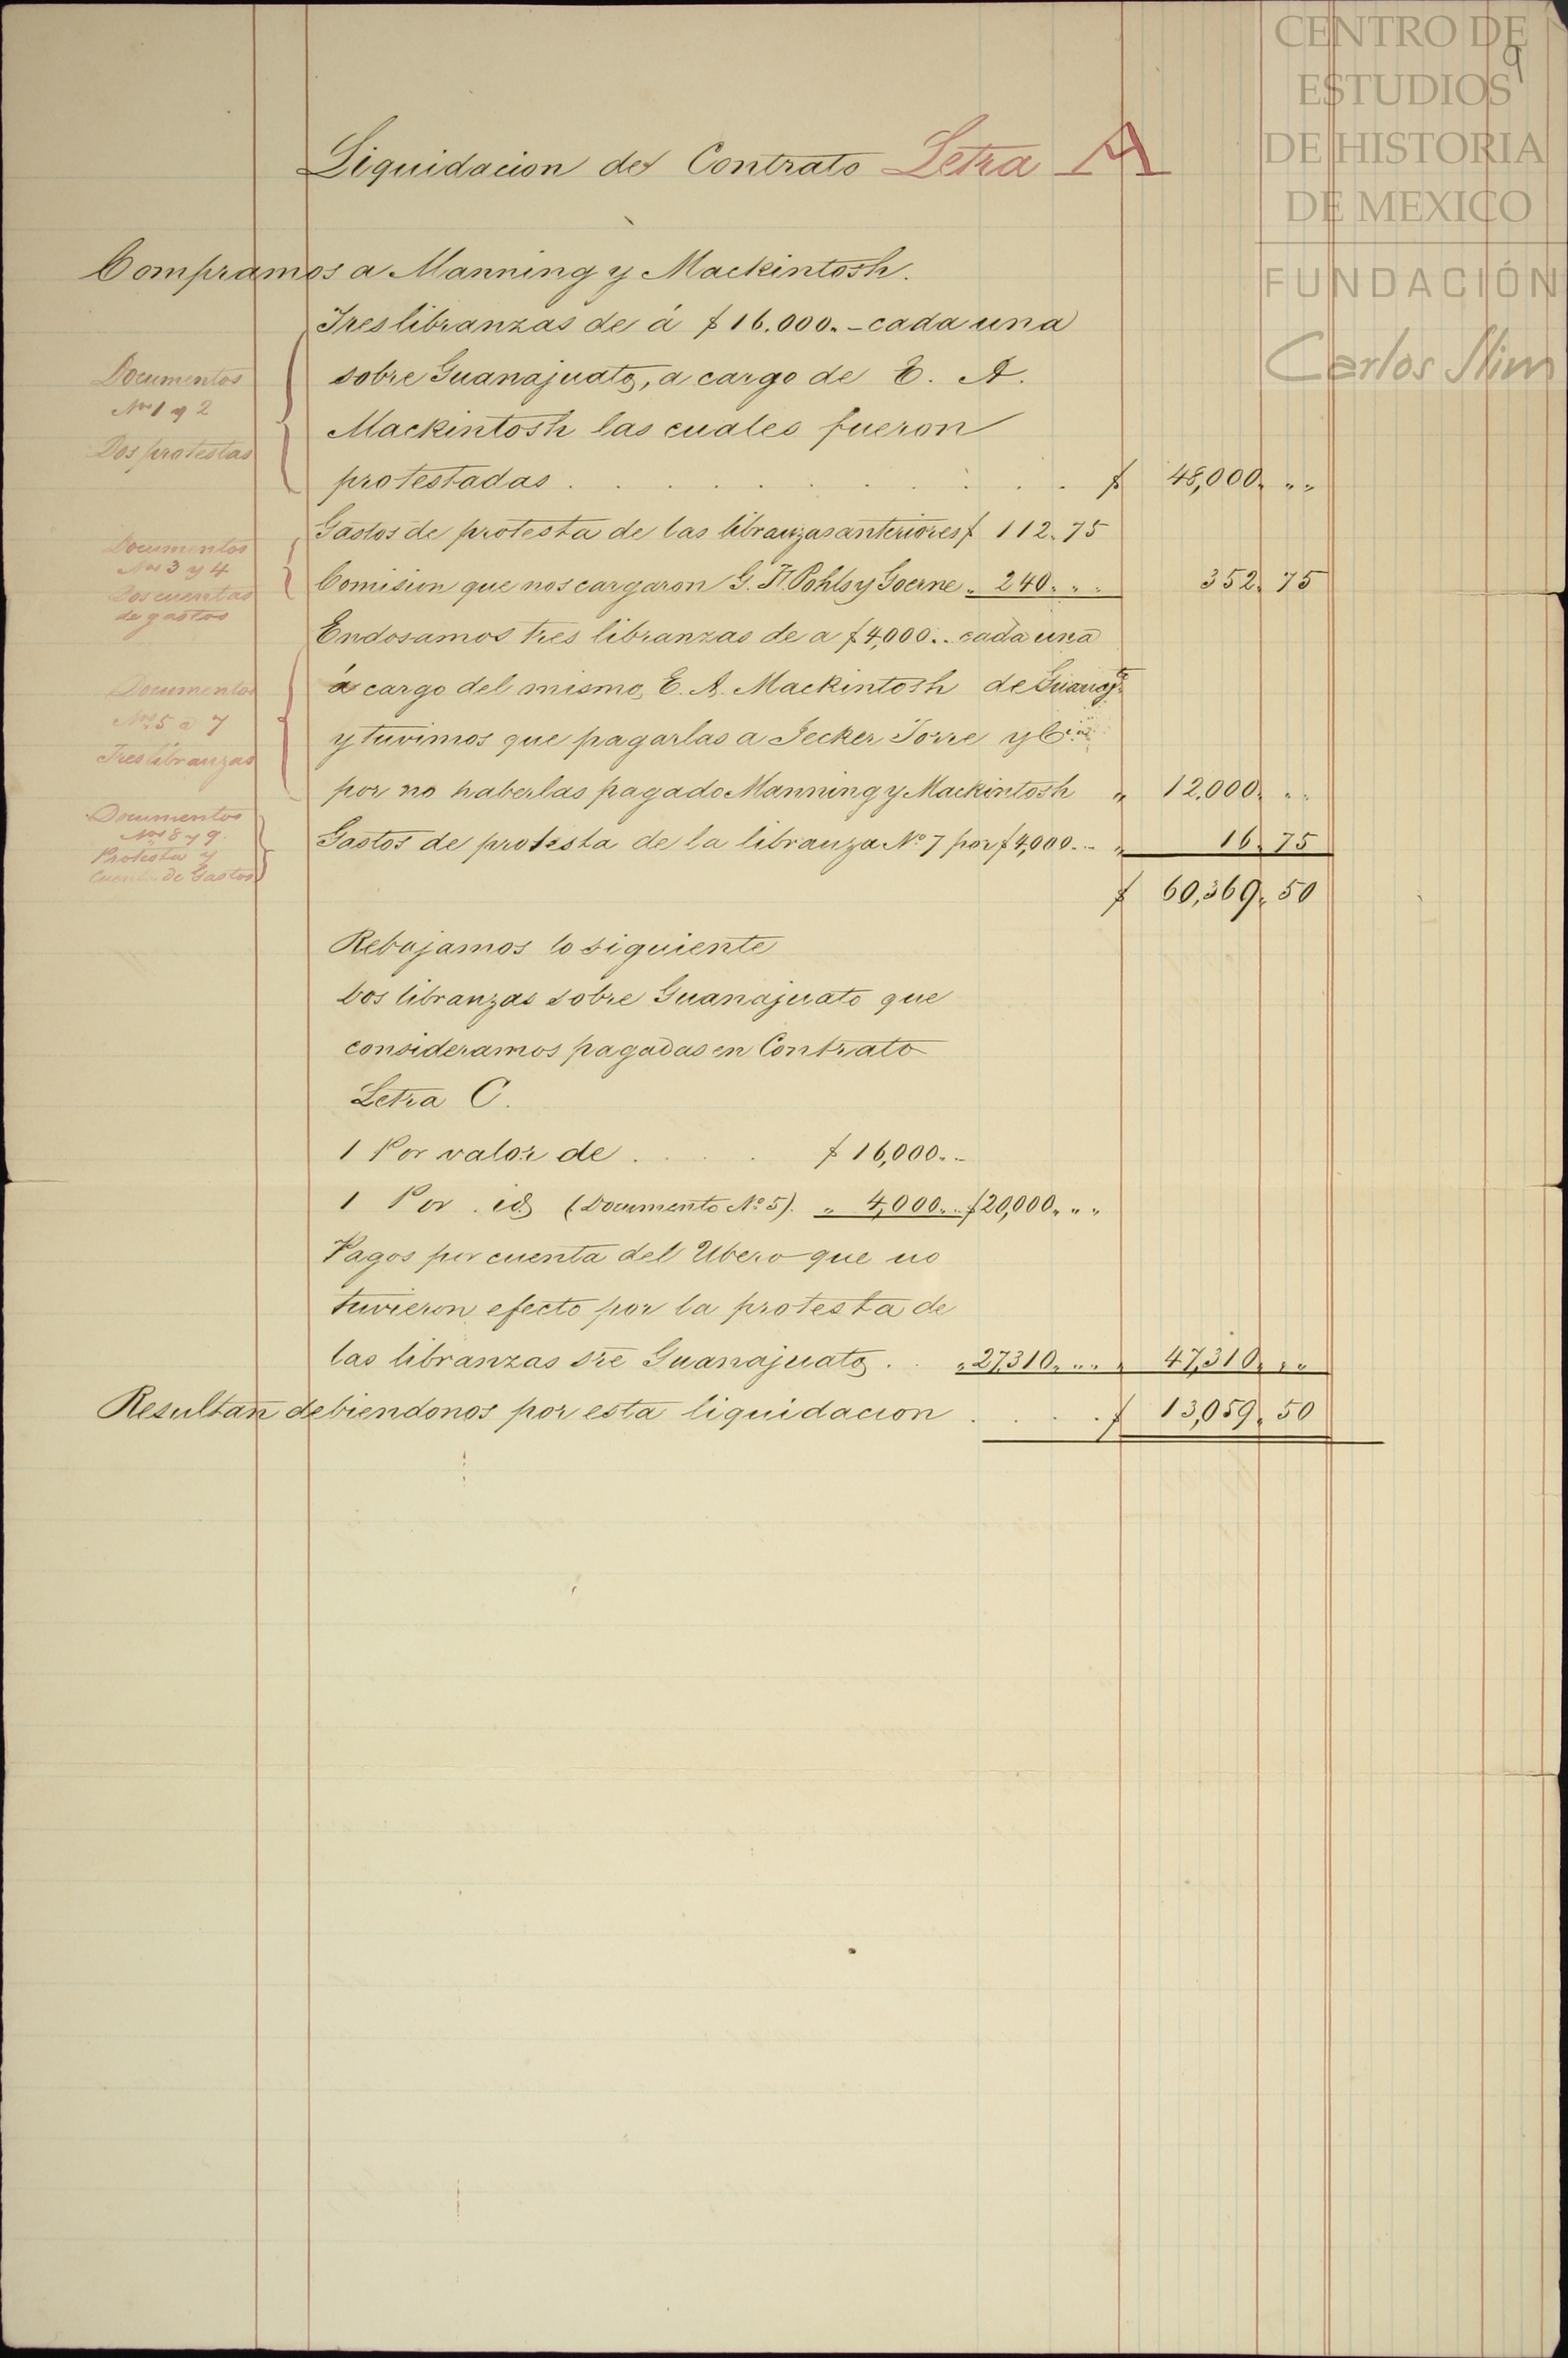 CENTRO DE
ESTUDIOS
DE HISTORIA
DE MEXICO
FUNDACIÓN
Carlos Slim
9
Liquidacion del Contrato Letra A
Compramos a Manning y Mackintosh.
Tres libranzas de á $16.000.- cada una
Documentos
Nos 1 y 2
Dos protestas
sobre Guanajuato, a cargo de E. A.
Mackintosh las cuales fueron
protestadas . . . . . . . . . . $ 48,000. „ „
Documentos
Nos 3 y 4
Dos cuentas
de gastos
Gastos de protesta de las libranzas anteriores $ 112.75
Comision que nos cargaron G. F. Pohls y Goerne „ 240. „ „ 352. 75
Endosamos tres libranzas de a $4,000.. cada una
Documentos
Nos 5 a 7
Tres libranzas
á cargo del mismo E. A. Mackintosh de Guanajto
y tuvimos que pagarlas a Jecker Torre y Cia
por no haberlas pagado Manning y Mackintosh „ 12,000. „ „
Documentos
Nos 8 y 9.
Protesta y
Cuenta de Gastos
Gastos de protesta de la libranza No 7 por $4,000.. „ 16. 75
$ 60,369. 50
Rebajamos lo siguiente
Dos libranzas sobre Guanajuato que
consideramos pagadas en Contrato
Letra C.
1 Por valor de . . . . $ 16,000..
1 Por . id. (Documento No 5). „ 4,000.. $20,000. „ „
Pagos por cuenta del Ubero que no
tuvieron efecto por la protesta de
las libranzas sre Guanajuato . . „ 27,310. „ „ „ 47,310. „ „
Resultan debiendonos por esta liquidacion . . . . $ 13,059. 50